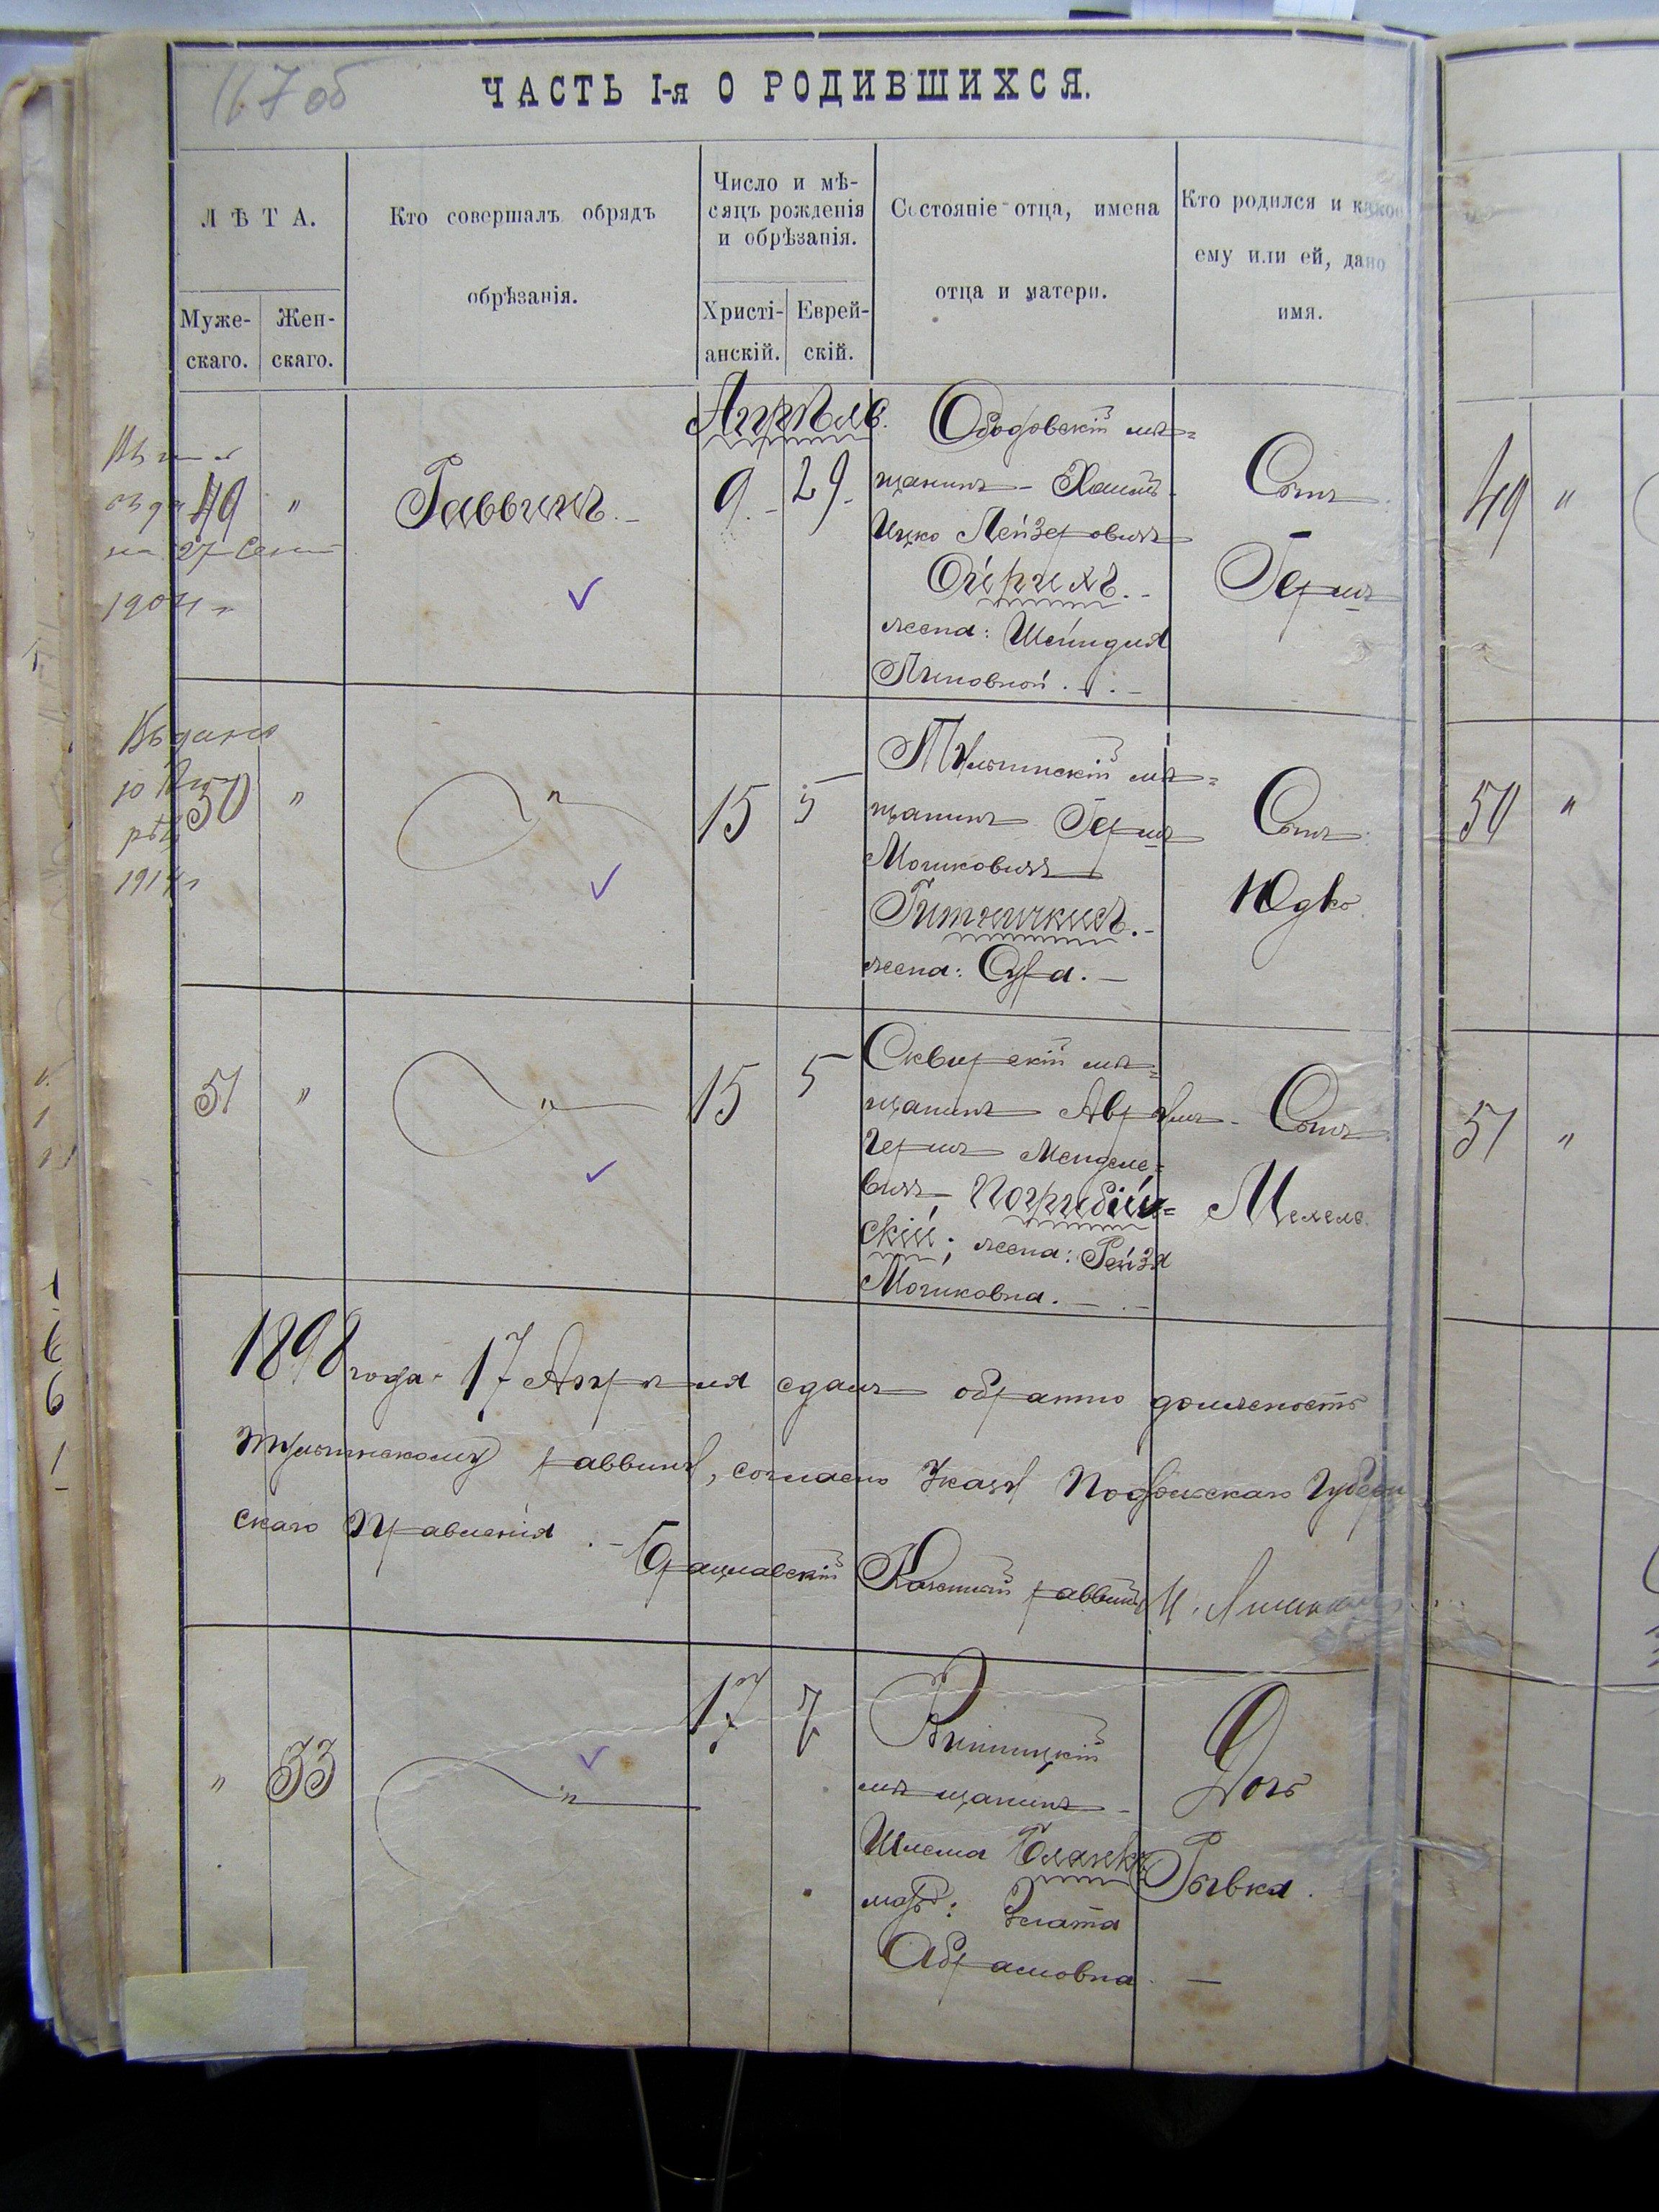 167 об
ЧАСТЬ I-я О РОДИВШИХСЯ.
ЛѢТА.
Муже-
скаго.
Жен-
скаго.
Кто совершалъ обрядъ
обрѣзанія.
Число и мѣ-
сяцъ рожденія
и обрѣзанія.
Христі-
анскій.
Еврей-
скій.
Состояніе отца, имена
отца и матери.
Кто родился и какое
ему или ей, дано
имя.
на 27 Сент
1904 г
49
"
Раввинъ.-
Апрѣль.
9.-
29.-
Ободовскій мѣ=
щанинъ - Хаимъ-
Ицко Лейзеровичъ
жена: Шейндля
Сынъ
Гершъ
49
"
Выдана
1914 г
50
"
"
15
5
Тульчинскій мѣ=
щанинъ Гершъ
Мошковичъ
жена: Сура.-
Сынъ
Юдко
50
"
51
"
"
15
5
Сквирскій мѣ=
щанинъ Аврумъ-
Гершъ Менделе=
вичъ Погребій=
скій; жена: Рейзя
Мошковна.-.-
Сынъ
51
"
1898 года 17 Апрѣля сдалъ обратно должность
тульчинскому раввину, согласно Указу Подольскаго Губерн
скаго Правленія.-
Брацлавскій Казенный раввинъ
"
33
"
17
7
Винницкій
мѣщанинъ -
Шлема Бланкъ
Злата
Абрамовна -
Дочь
Рывка.